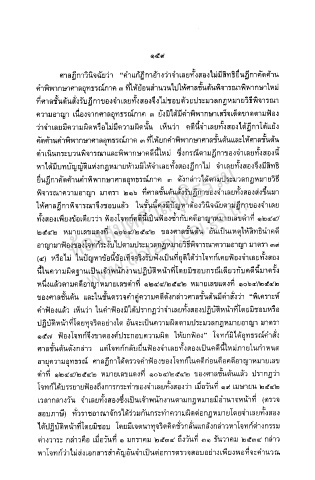 ๑๕๙
ศาลฎีกาวินิจฉัยว่า "คำแก้ฎีกาอ้างว่าจำเลยทั้งสองไม่มีสิทธิยื่นฎีกาคัดค้าน
คำพิพากษาศาลอุทธรณ์ภาค ๓ ที่ให้ย้อนสำนวนไปให้ศาลชั้นต้นพิจารณาพิพากษาใหม่
ที่ศาลชั้นต้นสั่งรับฎีกาของจำเลยทั้งสองจึงไม่ชอบด้วยประมวลกฎหมายวิธีพิจารณา
ความอาญา เนื่องจากศาลอุทธรณ์ภาค ๓ ยังมิได้มีคำพิพากษาเสร็จเด็ดขาดตามฟ้อง
ว่าจำเลยมีความผิดหรือไม่มีความผิดนั้น เห็นว่า คดีนี้จำเลยทั้งสองได้ฎีกาโต้แย้ง
คัดค้านคำพิพากษาศาลอุทธรณ์ภาค ๓ ที่ให้ยกคำพิพากษาศาลชั้นต้นและให้ศาลชั้นต้น
ดำเนินกระบวนพิจารณาและพิพากษาคดีนี้ใหม่ ซึ่งกรณีตามฎีกาของจำเลยทั้งสองนี้
หาได้มีบทบัญญัติแห่งกฎหมายห้ามมิให้จำเลยทั้งสองฎีกาไม่ จำเลยทั้งสองจึงมีสิทธิ
ยื่นฎีกาคัดค้านคำพิพากษาศาลอุทธรณ์ภาค ๓ ดังกล่าวได้ตามประมวลกฎหมายวิธี
พิจารณาความอาญา มาตรา ๒๑๖ ที่ศาลชั้นต้นสั่งรับฎีกาของจำเลยทั้งสองส่งขึ้นมา
ให้ศาลฎีกาพิจารณาจึงชอบแล้ว ในชั้นนี้คงมีปัญหาต้องวินิจฉัยตามฎีกาของจำเลย
ทั้งสองเพียงข้อเดียวว่า ฟ้องโจทก์คดีนี้เป็นฟ้องซ้ำกับคดีอาญาหมายเลขดำที่
๒๕๔๒ หมายเลขแดงที่ ของศาลชั้นต้น อันเป็นเหตุให้สิทธินำคดี
อาญามาฟ้องของโจทก์ระงับไปตามประมวลกฎหมายวิธีพิจารณาความอาญา มาตรา ๓๙
(๔) หรือไม่ ในปัญหาข้อนี้ข้อเท็จจริงรับฟังเป็นที่ยุติได้ว่าโจทก์เคยฟ้องจำเลยทั้งสอง
นี้ในความผิดฐานเป็นเจ้าพนักงานปฏิบัติหน้าที่โดยมิชอบกรณีเดียวกับคดีนี้มาครั้ง
หนึ่งแล้วตามคดีอาญาหมายเลขดำที่ หมายเลขแดงที่
ของศาลชั้นต้น และในชั้นตรวจคำคู่ความคดีดังกล่าวศาลชั้นต้นมีคำสั่งว่า "พิเคราะห์
คำฟ้องแล้ว เห็นว่า ในคำฟ้องมิได้ปรากฏว่าจำเลยทั้งสองปฏิบัติหน้าที่โดยมิชอบหรือ
ปฏิบัติหน้าที่โดยทุจริตอย่างใด อันจะเป็นความผิดตามประมวลกฎหมายอาญา มาตรา
๑๕๗ ฟ้องโจทก์จึงขาดองค์ประกอบความผิด ให้ยกฟ้อง" โจทก์มิได้อุทธรณ์คำสั่ง
ศาลชั้นต้นดังกล่าว แต่โจทก์กลับยื่นฟ้องจำเลยทั้งสองเป็นคดีนี้ใหม่ภายในกำหนด
อายุความอุทธรณ์ ศาลฎีกาได้ตรวจคำฟ้องของโจทก์ในคดีก่อนคือคดีอาญาหมายเลข
ดำที่ หมายเลขแดงที่ ของศาลชั้นต้นแล้ว ปรากฏว่า
โจทก์ได้บรรยายฟ้องถึงการกระทำของจำเลยทั้งสองว่า เมื่อวันที่ ๑๙ เมษายน ๒๕๔๒
เวลากลางวัน จำเลยทั้งสองซึ่งเป็นเจ้าพนักงานตามกฎหมายมีอำนาจหน้าที่ (ตรวจ
สอบภาษี) ทั่วราชอาณาจักรได้ร่วมกันกระทำความผิดต่อกฎหมายโดยจำเลยทั้งสอง
ได้ปฏิบัติหน้าที่โดยมิชอบ โดยมีเจตนาทุจริตคิดชั่วกลั่นแกล้งกล่าวหาโจทก์ต่างกรรม
ต่างวาระ กล่าวคือ เมื่อวันที่ ๑ มกราคม ๒๕๓๔ ถึงวันที่ ๓๑ ธันวาคม ๒๕๓๔ กล่าว
หาโจทก์ว่าไม่ส่งเอกสารสำคัญอันจำเป็นต่อการตรวจสอบอย่างเพียงพอที่จะคำนวณ